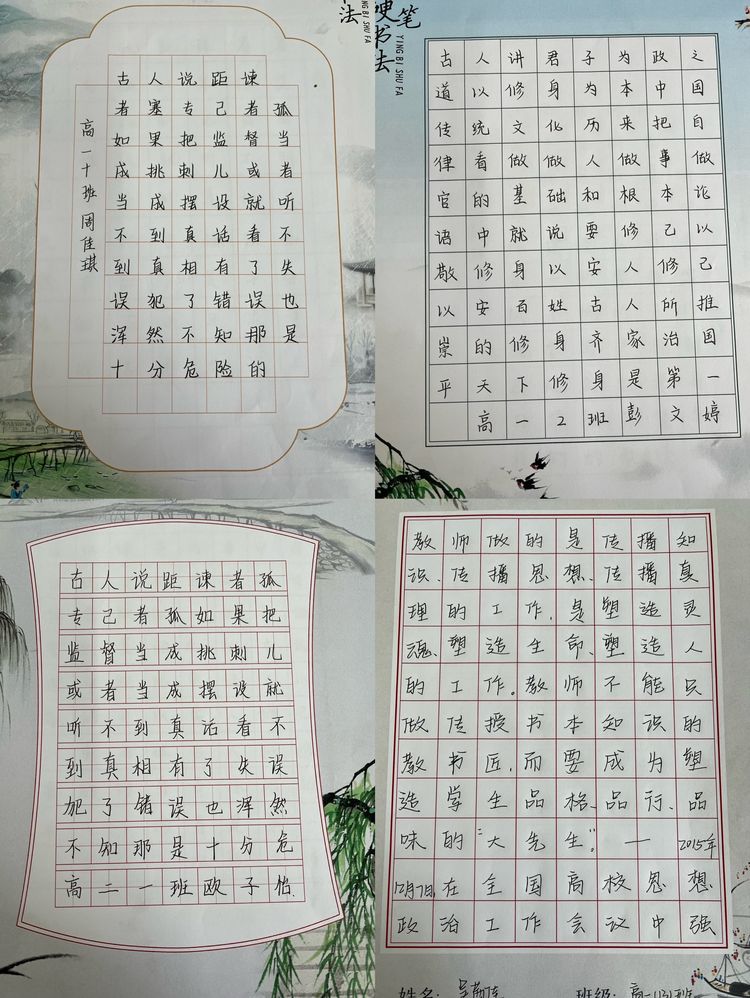 古人说距谏
者塞专己者孤
如果把监督当
成挑刺儿或者
当成摆设就听
不到真话看不
到真相有了失
误犯了错误也
浑然不知那是
十分危险的
高一十班周佳琪
硬笔书法
YING BI SHU FA
古人讲君子为政之
道以修身为本中国
传统文化历来把自
律看做做人做事做
官的基础和根本论
语中就说要修己以
敬修身以安人修己
以安百姓古人所推
崇的修身齐家治国
平天下修身是第一
高一12班彭文婷
古人说距谏者孤
专己者孤如果把
监督当成挑刺儿
或者当成摆设就
听不到真话看不
到真相有了失误
犯了错误也浑然
不知那是十分危
高二一班欧子怡
教师做的是传播知
识、传播思想、传播真
理的工作,是塑造灵
魂、塑造生命、塑造人
的工作。教师不能只
做传授书本知识的
教书匠,而要成为塑
造学生品格、品行、品
味的“大先生”。—2015年
12月7日,在全国高校思想
政治工作会议中强
姓名:
班级:高一(13)班